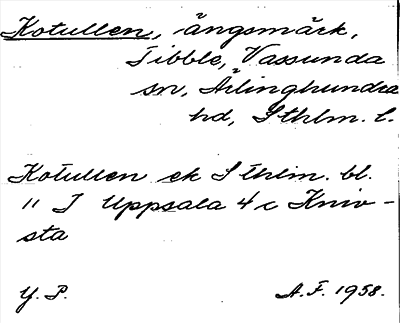 Kotullen, ängsmärk,
Tibble, Vassunda
sn, Ärlinghundra
hd, Sthlm. l.
Kotullen ek Sthlm. bl.
11 I Uppsala 4 c Kniv-
sta
Y. P.
A.F. 1958.